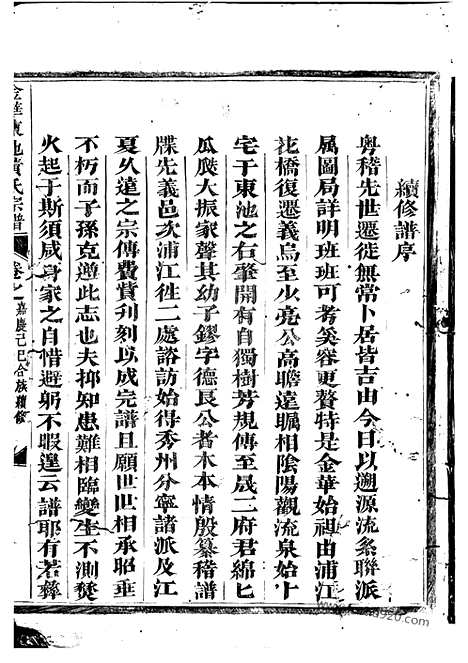 續修譜序
粵稽先世遷徙無常卜居皆吉由今日以遡源流条聯派
属圖局詳明班班可考奚容更贅特是金華始祖由浦江
花橋復遷義烏至少亮公高瞻遠矚相陰陽觀流泉始卜
宅于東池之右肇開有自獨樹芳規傳至晟二府君綿匕
瓜瓞大振家聲其幼子鏐字德良公者木本情殷纂稽譜
牒先義邑次浦江徃二處諮訪始得秀州分寧諸派及江
夏久遠之宗傳費貲刋刻以成完譜且願世世相承昭垂
不朽而子孫克遵此志也夫抑知患難相臨變生不測焚
火起于斯須咸身家之自惜避躬不暇遑云譜耶有若彝
金華東池黃氏宗譜
卷之一
嘉慶己巳合族續修